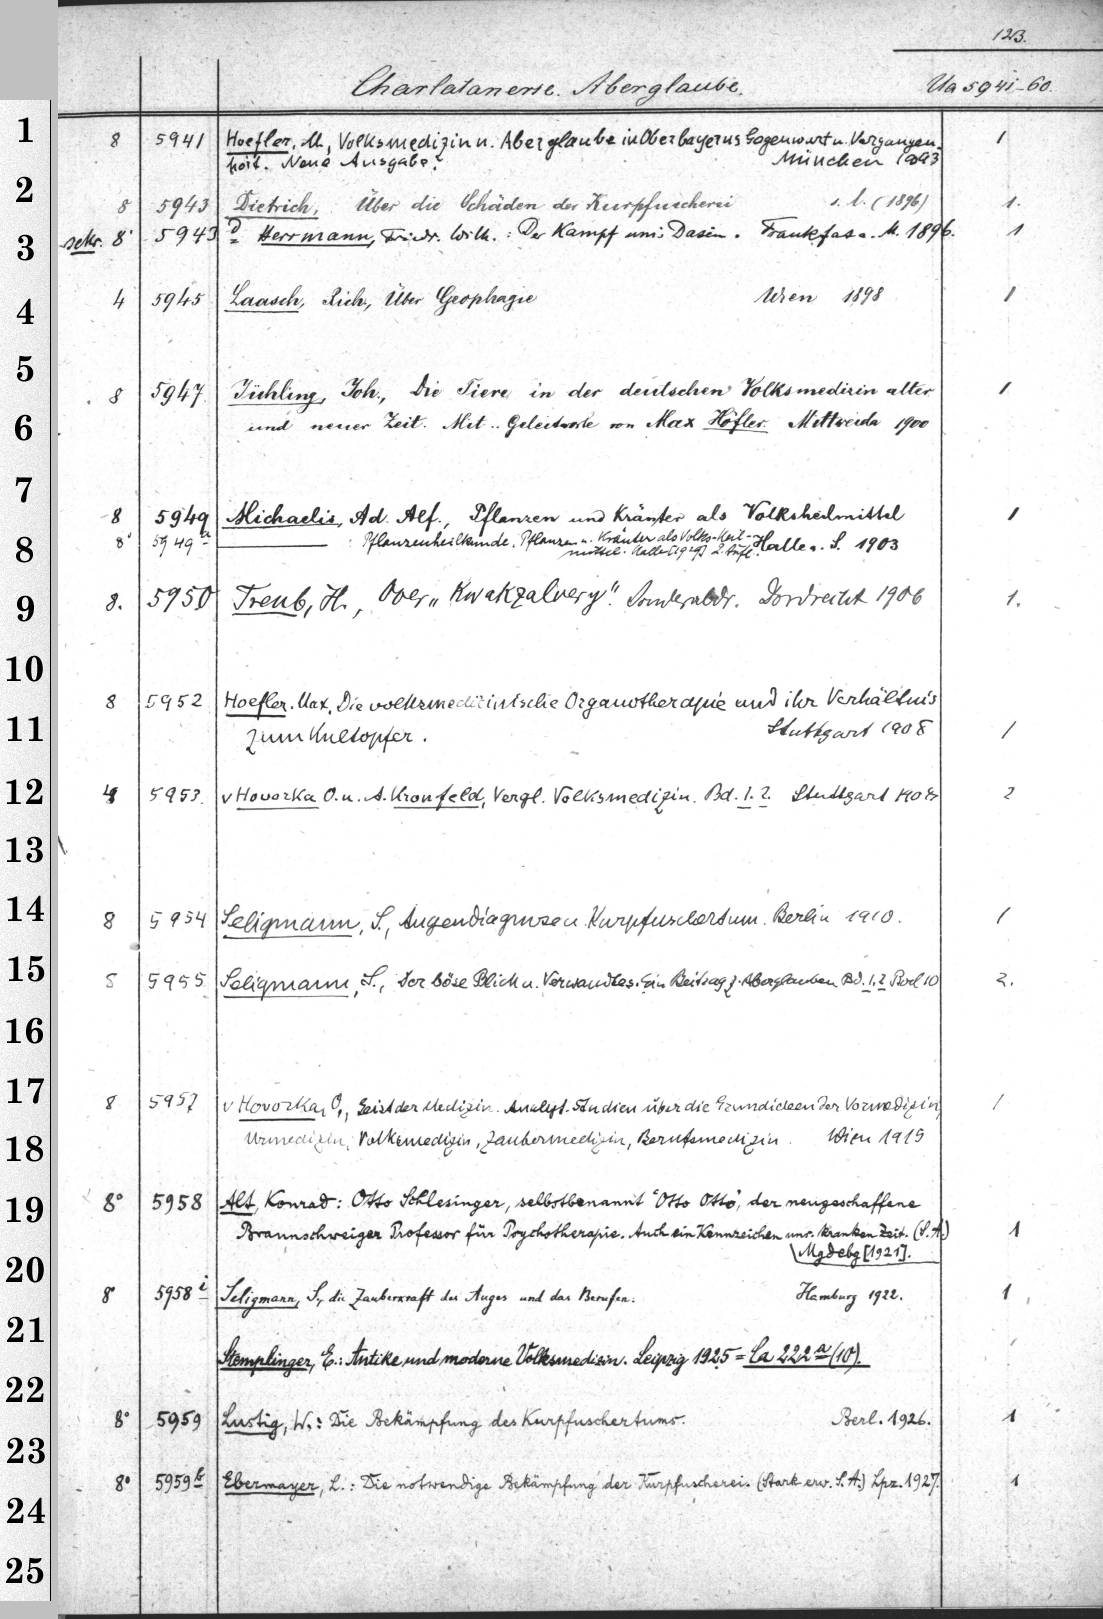 123.
Charlatanerie. Aberglaube. Ua 5941-60.
1
2
3
4
5
6
7
8
9
10
11
12
13
14
15
16
17
18
19
20
21
22
23
24
25
8 5941 Hoefler, M., Volksmedizin u. Aberglaube in Oberbayerns Gegenwart u. Vergangen- 1
heit. Neue Ausgabe. München 1893
8 5943 Dietrich, Über die Schäden der Kurpfuscherei s. l. (1896) 1.
sekr. 8° 5943 d Herrmann, Friedr. Wilh.: Der Kampf ums Dasein. Frankf a. M. 1896. 1
4 5945 Laasch, Rich., Über Geophagie Wien 1898 1
8 5947 Jühling, Joh., Die Tiere in der deutschen Volksmedizin alter 1
und neuer Zeit. Mit .. Geleitworte von Max Höfler. Mittweida 1900
8 5949 Michaelis, Ad. Alf., Pflanzen und Kräuter als Volksheilmittel 1
8° 5949 a : Pflanzenheilkunde. Pflanzen u. Kräuter als Volks-Heil-
mittel. Halle [1919] 2. Aufl. Halle a. S. 1903
8. 5950 Treub, H., Over „Kwakzalvery“. Sonderabdr. Dordrecht 1906 1.
8 5952 Hoefler, Max, Die volksmedizinische Organotherapie und ihr Verhältnis
zum Kultopfer. Stuttgart 1908 1
4 5953. v Hovorka O. u. A. Kronfeld, Vergl. Volksmedizin. Bd. 1. 2. Stuttgart 2
8 5954 Seligmann, S., Augendiagnose u. Kurpfuschertum. Berlin 1910. 1
5955 Seligmann, S., Der böse Blick u. Verwandtes. Ein Beitrag z. Aberglauben Bd. 1. 2 Berl 10 2.
8 5957 v Hovorka, O., Geist der Medizin. Analyt. Studien über die Grundideen der Vormedizin, 1
Urmedizin, Volksmedizin, Zaubermedizin, Berufsmedizin. Wien 1915
8° 5958 Alt, Konrad: Otto Schlesinger, selbstbenannt 'Otto Otto', der neugeschaffene
Braunschweiger Professor für Psychotherapie. Auch ein Kennzeichen uns. kranken Zeit. (S.A.) 1
Mgdebg [1921].
8° 5958 i Seligmann, S., die Zauberkraft des Auges und das Berufen. Hamburg 1922. 1
Stemplinger, E.: Antike und moderne Volksmedizin. Leipzig 1925 = Ca 222 a (10).
8° 5959 Lustig, W.: Die Bekämpfung des Kurpfuschertums. Berl. 1926. 1
8° 5959 b Ebermayer, L.: Die notwendige Bekämpfung der Kurpfuscherei. (Stark erw. S.A.) Lpz. 1927. 1